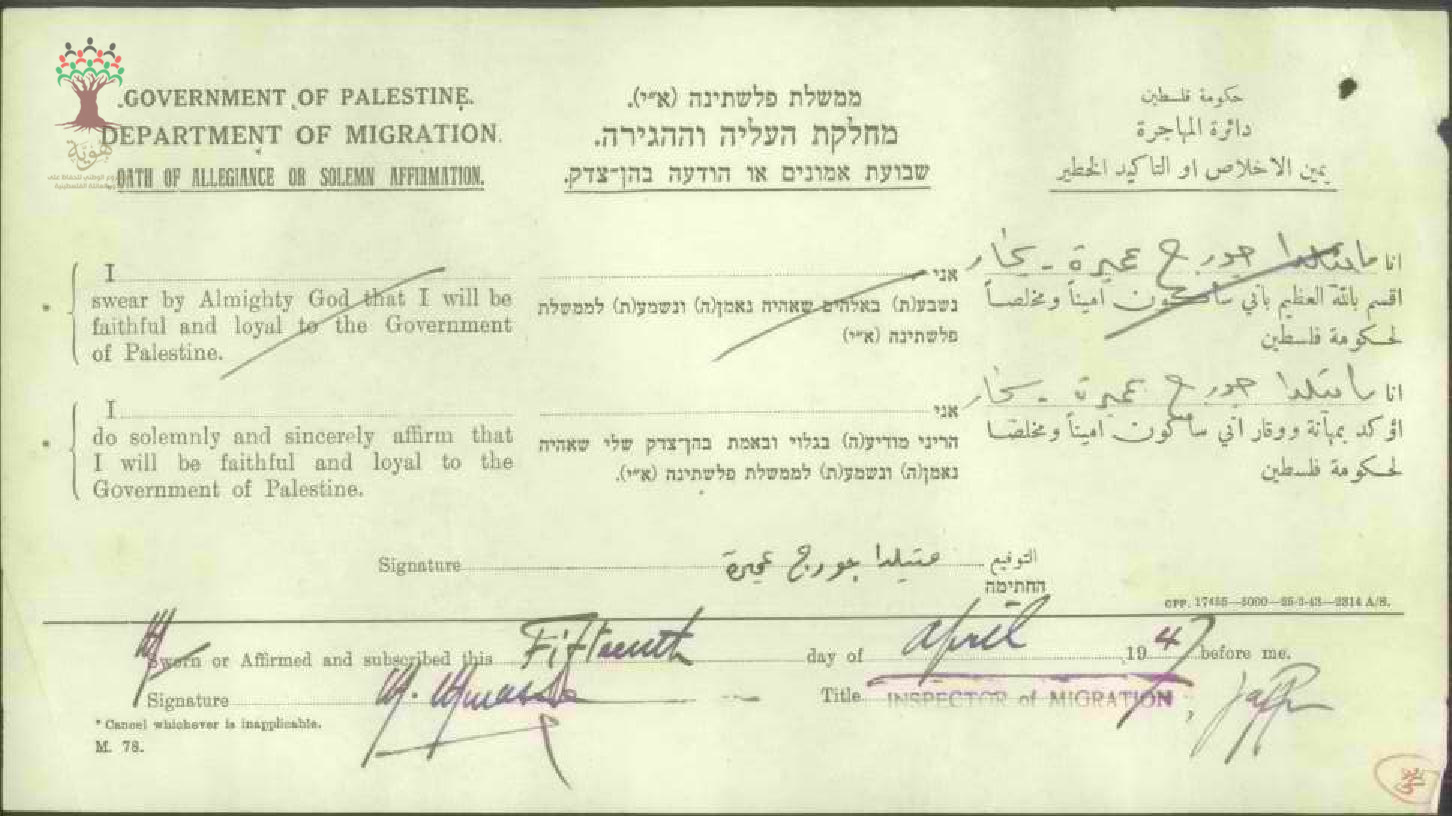 .GOVERNMENT OF PALESTINE.
DEPARTMENT OF MIGRATION.
OATH OF ALLEGIANCE OR SOLEMN AFFIRMATION.
ממשלת פלשתינה (א״י).
מחלקת העליה וההגירה.
שבועת אמונים או הודעה בהן־צדק.
حكومة فلسطين
دائرة المهاجرة
يمين الاخلاص او التاكيد الخطير
هوية
* I
swear by Almighty God that I will be
faithful and loyal to the Government
of Palestine.
אני
נשבע(ת) באלהים שאהיה נאמן(ה) ונשמע(ת) לממשלת
פלשתינה (א״י)
انا ماتيلدا جورج عميرة -
اقسم بالله العظيم باني سأكون اميناً ومخلصاً
لحكومة فلسطين
* I
do solemnly and sincerely affirm that
I will be faithful and loyal to the
Government of Palestine.
אני
הריני מודיע(ה) בגלוי ובאמת בהן־צדק שלי שאהיה
נאמן(ה) ונשמע(ת) לממשלת פלשתינה (א״י).
انا ماتيلدا جورج عميرة -
اؤكد بمهابة ووقار اني سأكون اميناً ومخلصاً
لحكومة فلسطين
Signature متيلدا جورج عميرة التوقيع
החתימה
GPP. 17455—5000—25-3-43—2314 A/S.
Sworn or Affirmed and subscribed this Fifteenth day of April 1947 before me.
Signature Title INSPECTOR of MIGRATION, Jaffa
* Cancel whichever is inapplicable.
M. 78.